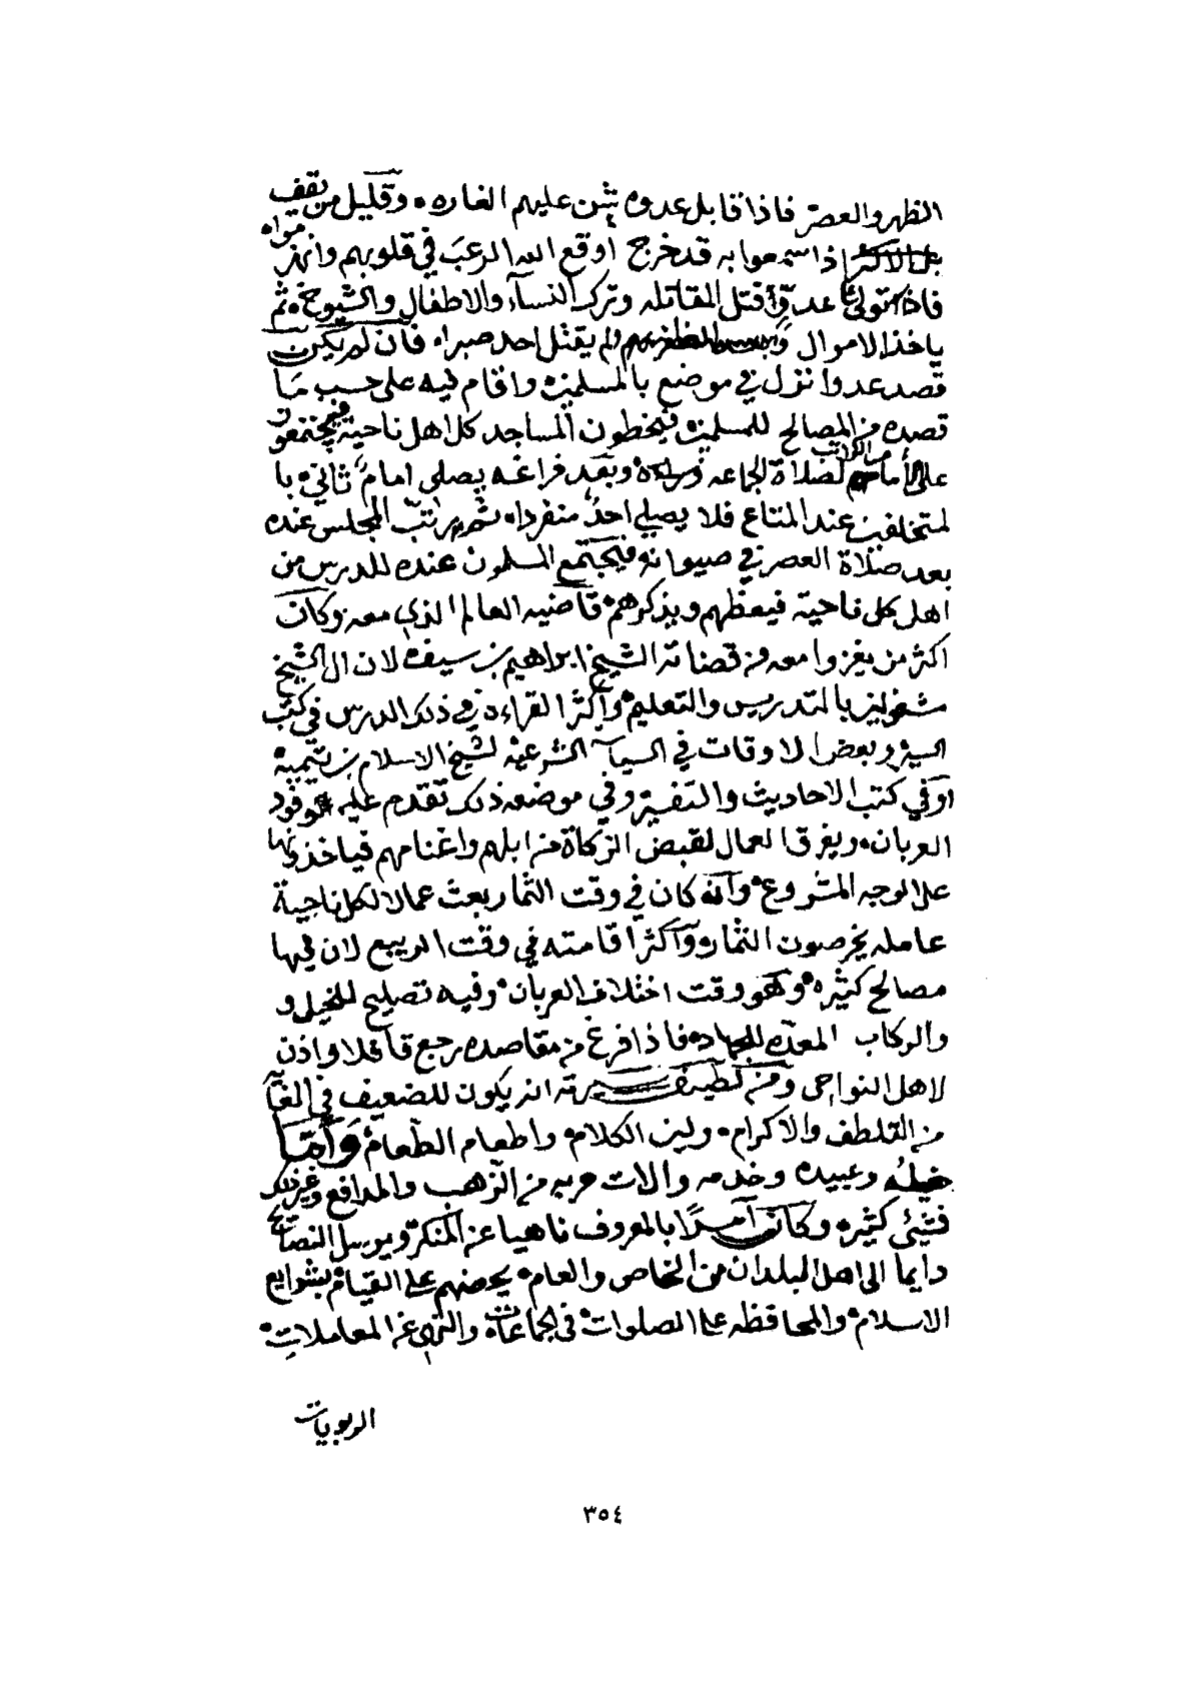 الظهر والعصر فاذا قابل عدوه شن عليهم الغاره وقليل من يقف
بل الاكثر اذا سمعوا به قد خرج اوقع الله الرعب في قلوبهم وانهزموا
فاذا استولى على عدوه قتل المقاتله وترك النسآء والاطفال والشيوخ ثم
ياخذ الاموال ولم يقتل احد صبرا فان لم يكن
قصد عدوا نزل في موضع بالمسلمين واقام فيه على حسب ما
قصده من المصالح للمسلمين فيخطون المساجد كل اهل ناحية فيجتمعون
على لصلاة الجماعه وبعد فراغه يصلي امام ثاني با
لمتخلفين عند المتاع فلا يصلي احد منفردا ثم يرتب المجلس عنده
بعد صلاة العصر في صيوانه فيجتمع المسلمون عنده للدرس من
اهل كل ناحية فيعظهم ويذكرهم قاضيه العالم الذي معه وكان
اكثر من يغزوا معه من قضاته الشيخ ابراهيم بن سيف لان ال الشيخ
مشغولين بالتدريس والتعليم واكثر القراءة في ذلك الدرس في كتب
السير وبعض الاوقات في السياسة الشرعية لشيخ الاسلام بن تيمية
او في كتب الاحاديث والتفسير وفي موضعه ذلك تقدم عليه وفود
العربان ويفرق العمال لقبض الزكاة من ابلهم واغنامهم فياخذونها
على الوجه المشروع وانه كان في وقت الثمار بعث عمالا لكل ناحية
عامله يخرصون الثمار واكثر اقامته في وقت الربيع لان فيها
مصالح كثيره وهو وقت اختلاف العربان وفيه تصليح للخيل و
والركاب المعده للجهاد فاذا فرغ من مقاصده رجع قافلا واذن
لاهل النواحي ومن لطيف سيرته انه يكون للضعيف في الغاية
من التلطف والاكرام ولين الكلام واطعام الطعام وأما
خيله وعبيده وخدمه والات حربه من الزهب والمدافع وغير ذلك
فشيئ كثير وكان آمرا بالمعروف ناهيا عن المنكر ويرسل النصائح
دايما الى اهل البلدان من الخاص والعام يحضهم على القيام بشرايع
الاسلام والمحافظه على الصلوات في الجماعات والنهي عن المعاملات
الربويات
٣٥٤